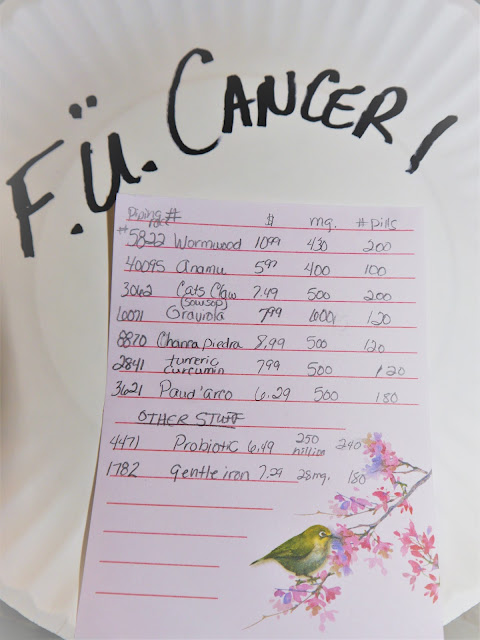 F.Ü. CANCER!
Piping # $ mg. # pills
#5822 Wormwood 1099 430 200
40095 Anamu 5.97 400 100
3062 Cats Claw 7.49 500 200
(soursop)
10071 Graviola 799 1000 120
8870 Chanca piedra 8.99 500 120
2841 turmeric 799 500 120
curcumin
3621 Paud'arco 6.29 500 180
OTHER STUFF
4471 Probiotic 6.49 250 240
million
1782 Gentle iron 7.29 28mg. 180